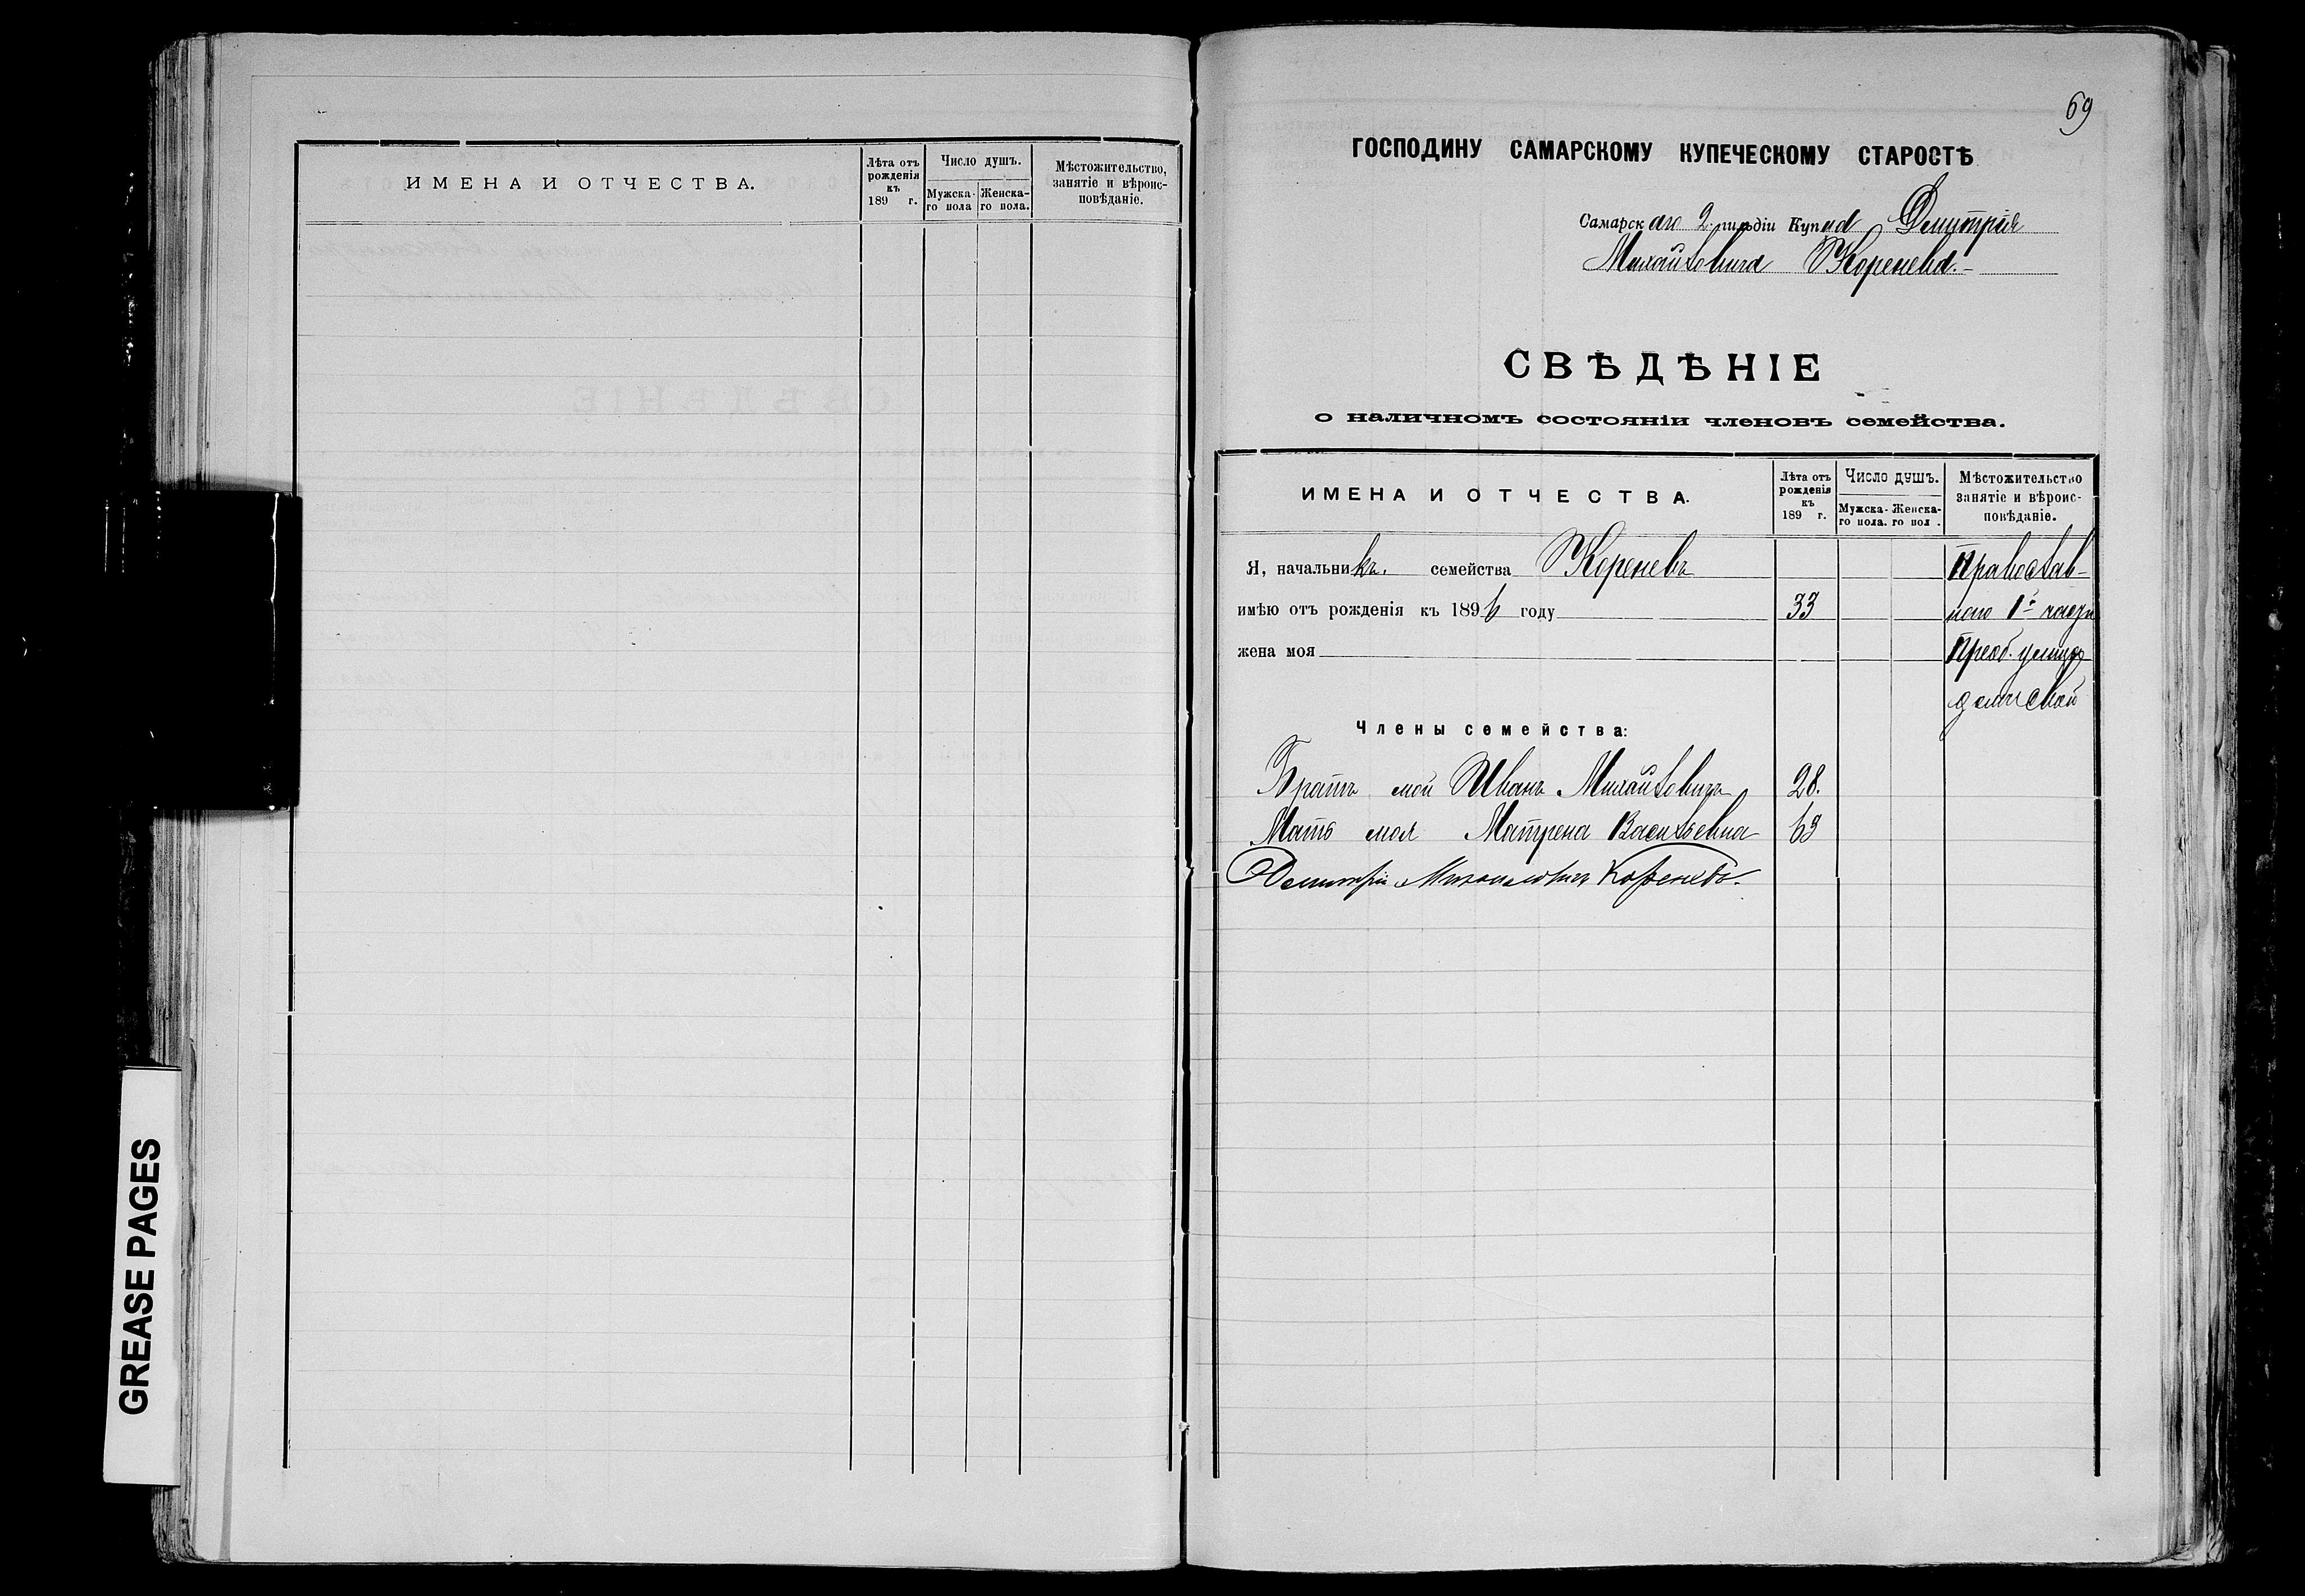 ИМЕНА И ОТЧЕСТВА.
Лѣта отъ рожденія къ 189 г.
Число душъ.
Мужска-го пола
Женска-го пола.
Мѣстожительство, занятіе и вѣроис-повѣданіе.
GREASE PAGES
69
ГОСПОДИНУ САМАРСКОМУ КУПЕЧЕСКОМУ СТАРОСТѢ
Самарскаго 2 гильдіи Купца Дмитрія
Михайловича Коренева.-
СВѢДѢНІЕ
о наличномъ состояніи членовъ семейства.
ИМЕНА И ОТЧЕСТВА.
Лѣта отъ рожденія къ 189 г.
Число душъ.
Мужска-го пола.
Женска-го пол .
Мѣстожительство занятіе и вѣроис-повѣданіе.
Я, начальникъ. семейства Кореневъ Православ-
имѣю отъ рожденія къ 1896 году 33 наго 1й части
жена моя Преоб. улица
домъ свой
Члены семейства:
Братъ мой Иванъ Михайловичъ 28.
Мать моя Матрена Васильевна 69
Дмитрій Михаиловичъ Кореневъ.